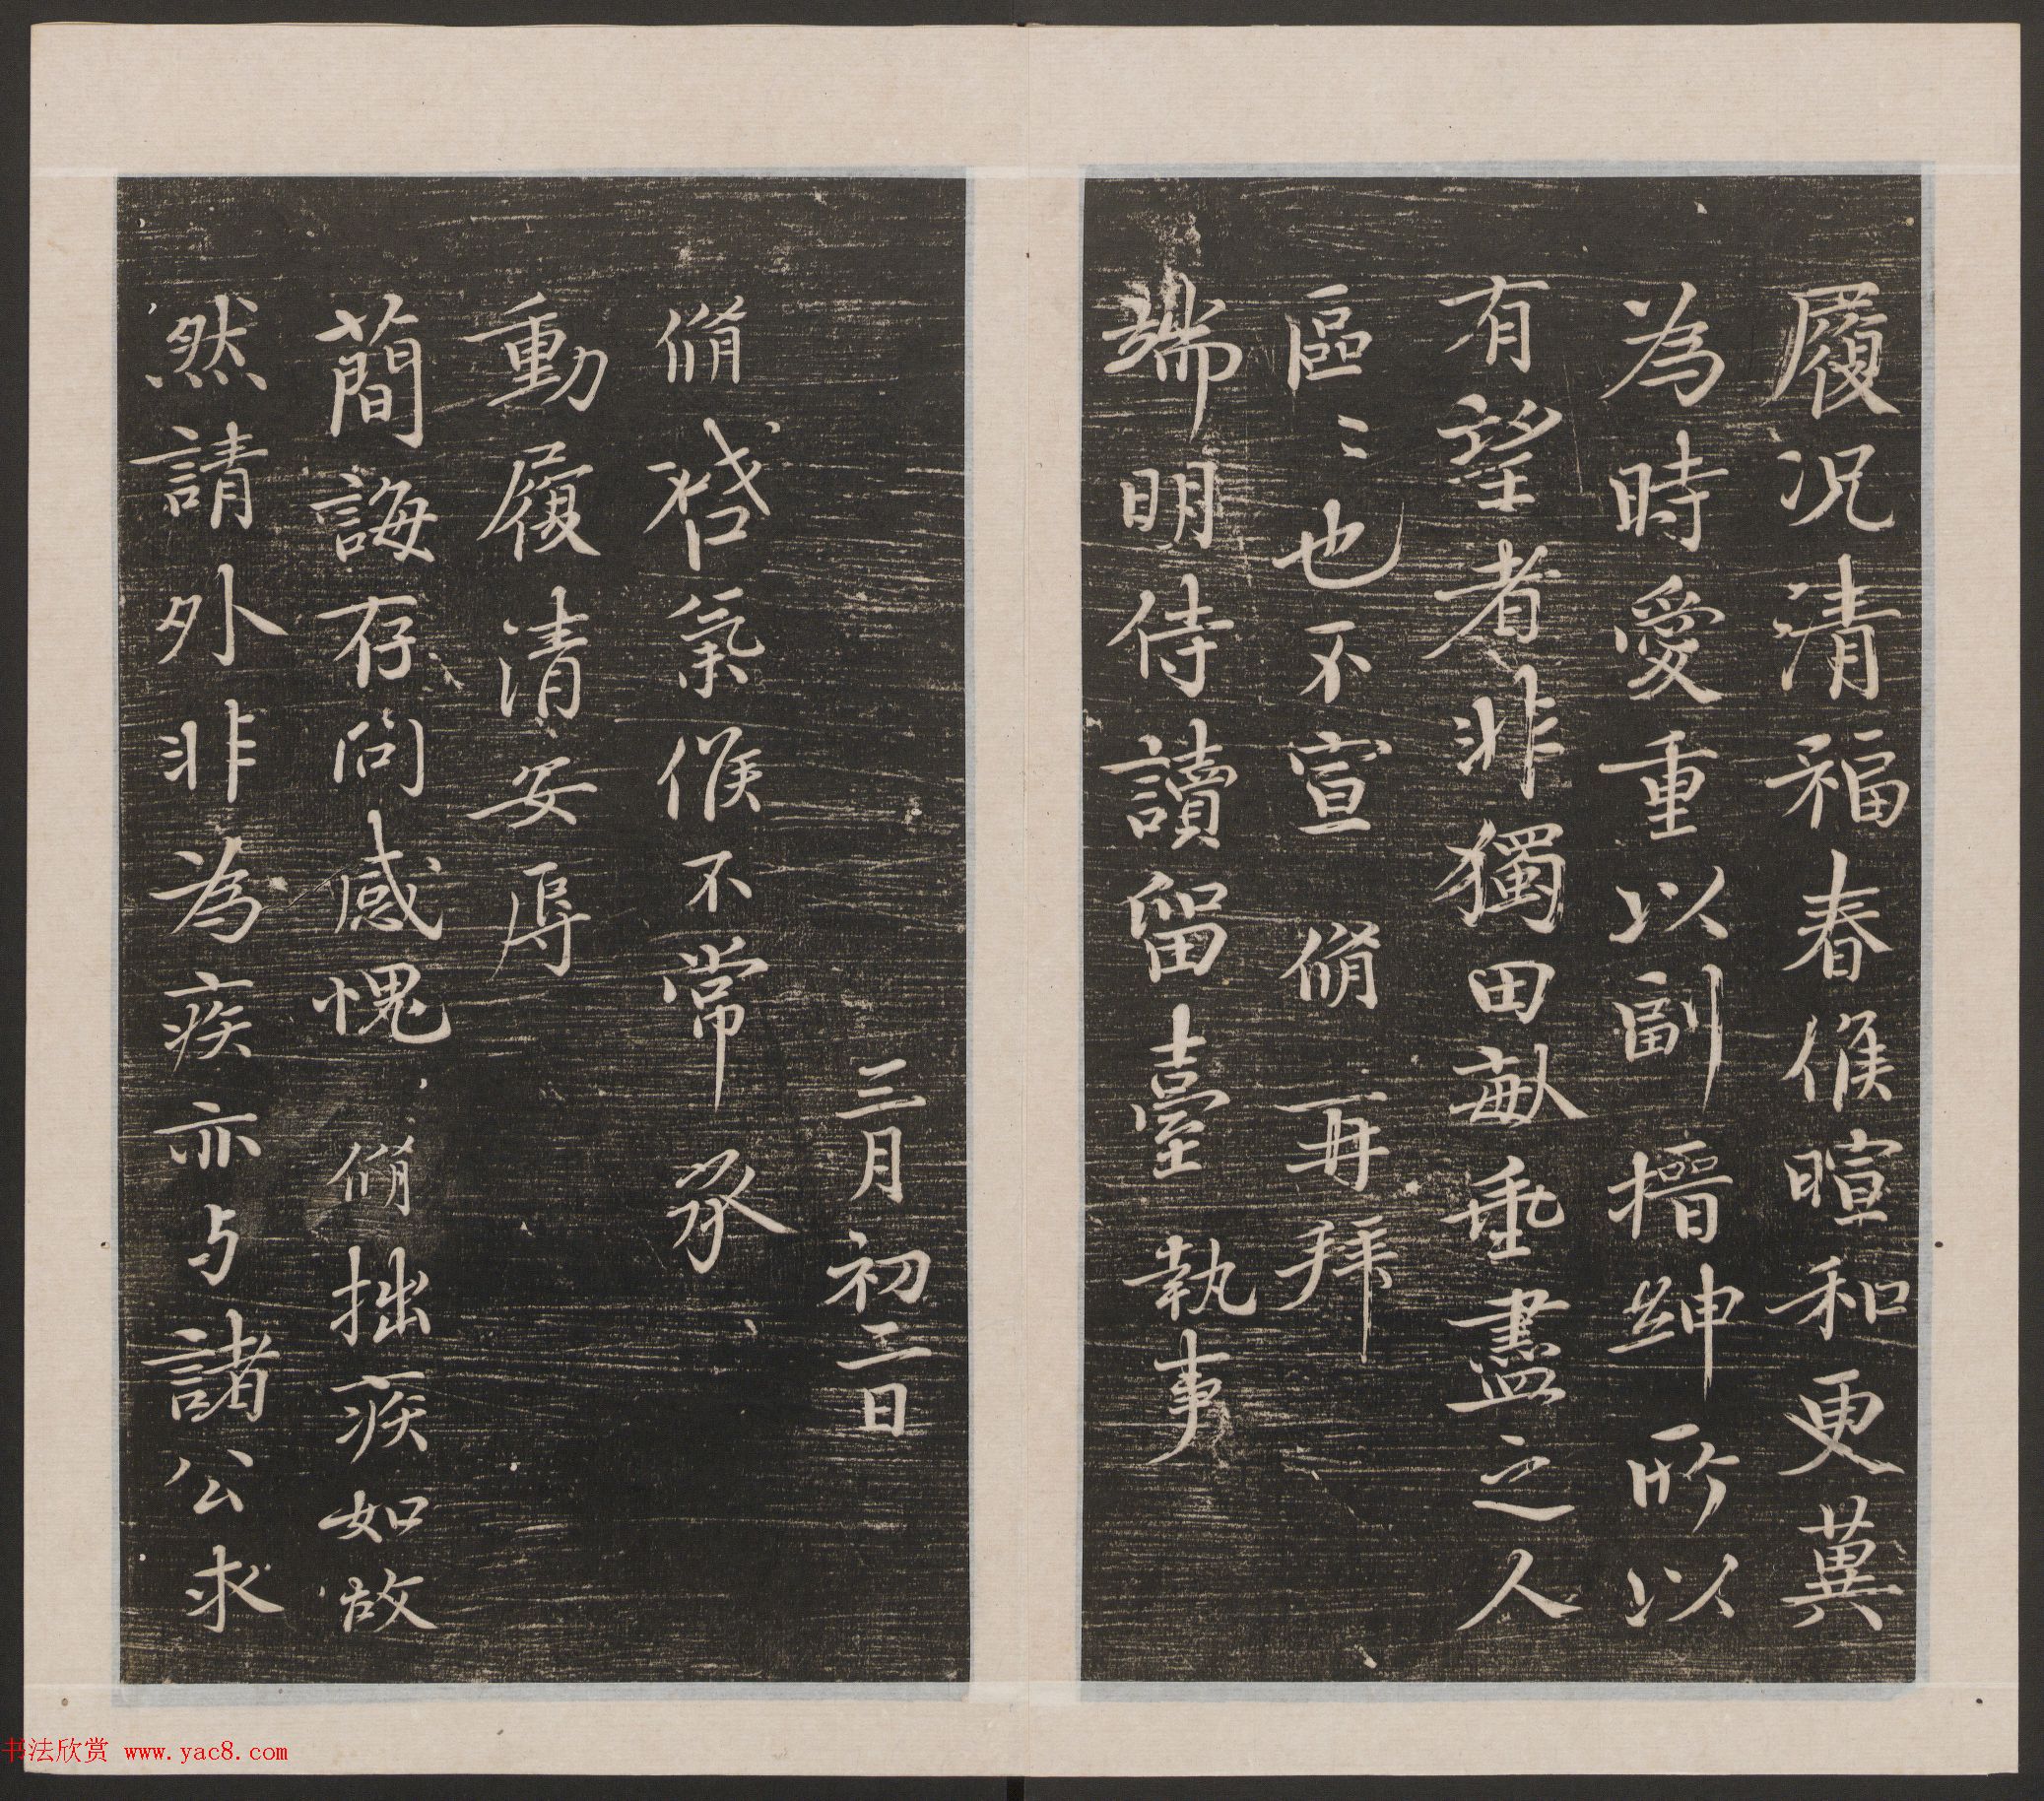 履况清福春候暄和更冀
為時愛重以副搢紳所以
有望者非獨田畝垂盡之人
區〻也不宣脩再拜
端明侍讀留臺執事
三月初二日
脩啓氣候不常承
動履清安辱
簡誨存問感愧脩拙疾如故
然請外非為疾亦与諸公求
书法欣赏 www.yac8.com